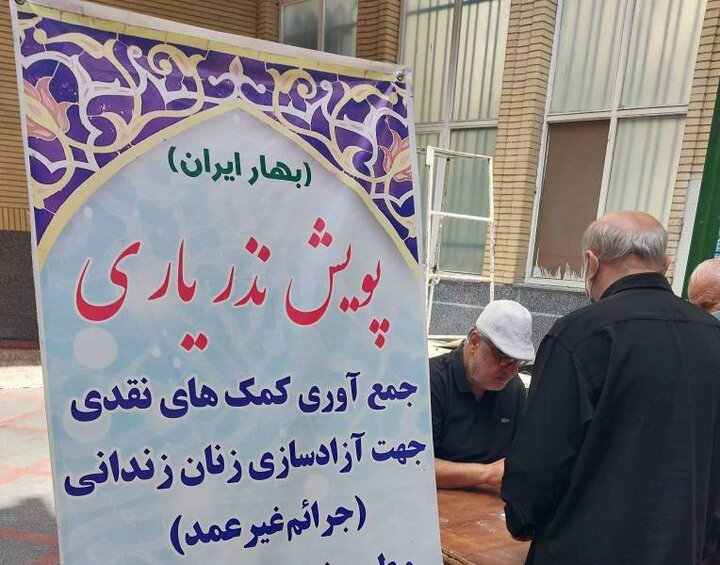 (بهار ایران)
پویش نذر یاری
جمع آوری کمک های نقدی
جهت آزادسازی زنان زندانی
(جرائم غیر عمد)